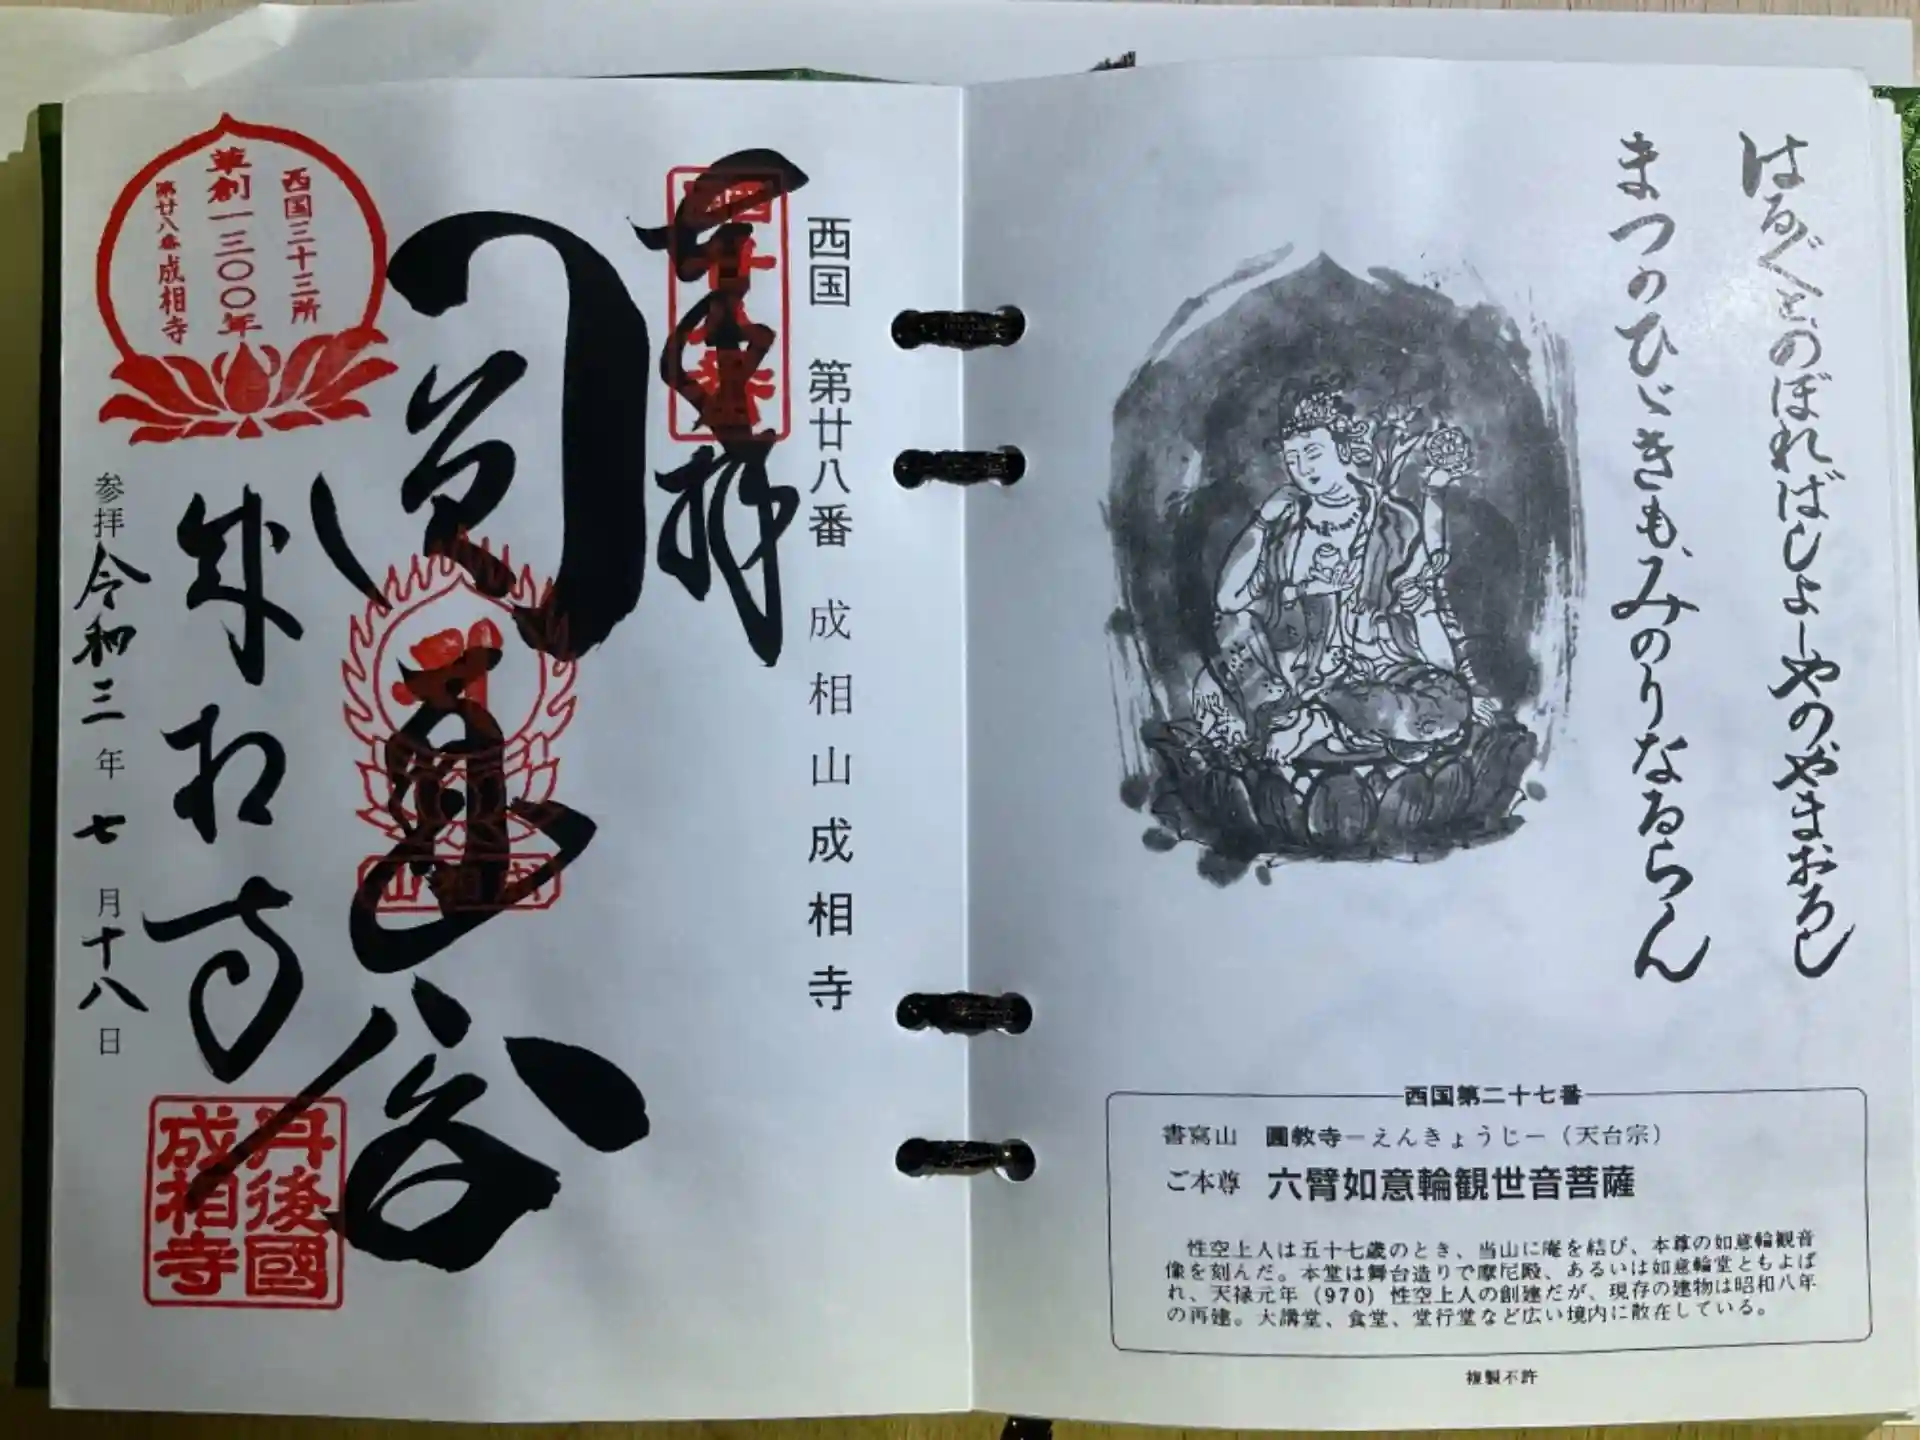 はる〲とのぼればしよしやのやまおろし
まつのひゞきも、みのりなるらん
西国第二十七番
書寫山 圓教寺－えんきょうじ－（天台宗）
ご本尊 六臂如意輪観世音菩薩
性空上人は五十七歳のとき、当山に庵を結び、本尊の如意輪観音
像を刻んだ。本堂は舞台造りで摩尼殿、あるいは如意輪堂ともよば
れ、天禄元年（970）性空上人の創建だが、現存の建物は昭和八年
の再建。大講堂、食堂、堂行堂など広い境内に散在している。
複製不許
西国 第廿八番 成相山成相寺
奉拝
圓通
成相寺
西国三十三所
草創一三〇〇年
第廿八番成相寺
成相山
参拝 令和三年七月十八日
丹後國
成相寺